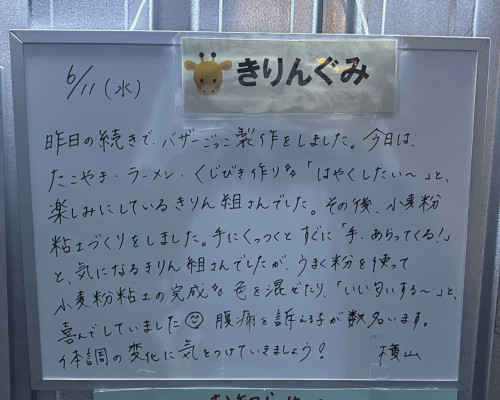 きりんぐみ
6/11(水)
昨日の続きで、バザーごっこ製作をしました。今日は、
たこやき・ラーメン・くじびき作り♪「はやくしたい〜」と、
楽しみにしているきりん組さんでした。その後、小麦粉
粘土づくりをしました。手にくっつくとすぐに「手、あらってくる!」
と、気になるきりん組さんでしたが、うまく粉を使って
小麦粉粘土の完成♪色を混ぜたり、「いい匂いする〜」と、
喜んでしていました☺ 腹痛を訴える子が数名います。
体調の変化に気をつけていきましょう! 横山